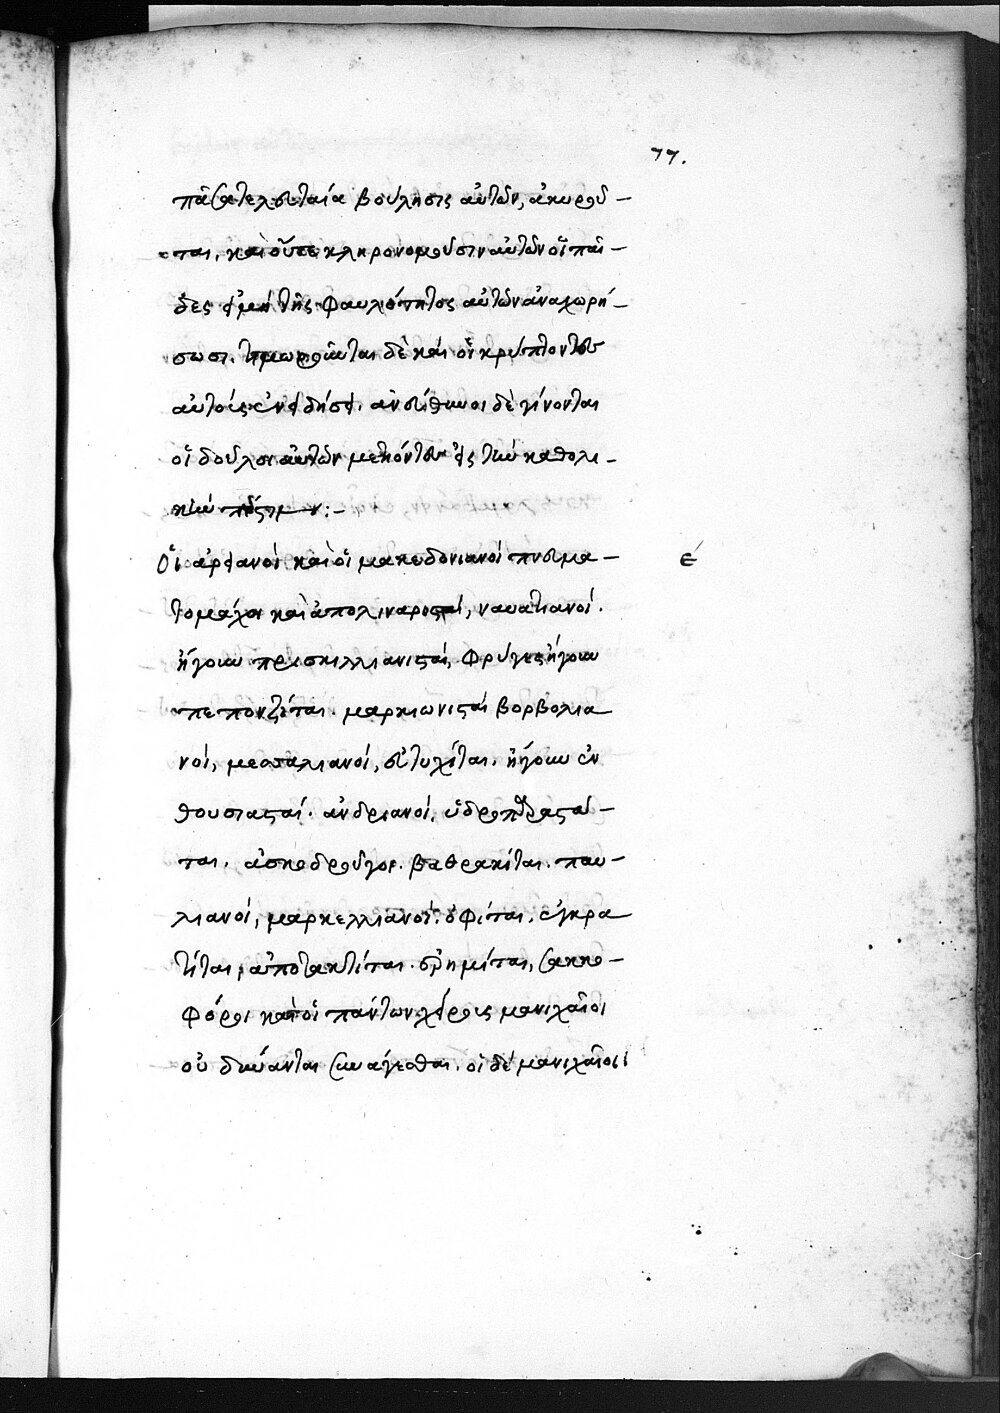 77.
πᾶσα τελευταία βούλησις αὐτῶν, ἀκυροῦ –
ται, καὶ οὔτε κληρονομοῦσιν αὐτῶν οἱ παῖ –
δες εἰ μὴ τῆς φαυλότητος αὐτῶν ἀναχωρή –
σωσι. τιμωροῦνται δὲ καὶ οἱ κρύπτοντες
αὐτοὺς ἀνεύθυνοι δὲ γίνονται
οἱ δοῦλοι αὐτῶν μετιόντες εἰς τὴν καθολι –
κὴν πίστιν :–
Οἱ ἀρειανοὶ καὶ οἱ μακεδονιανοὶ πνευμα – ε´
τομάχοι καὶ ἀπολιναρισταί, ναυατιανοί.
ἤγουν πρισκιλλιανισταί, φρύγες ἤγουν
πεπουζῖται. μαρκιωνισταί βορβολια
νοί, μεσσαλιανοί, εὐτυχῖται. ἤγουν ἐν
θουσιασταί. ἀνδριανοί. ὑδροπαραστά –
ται. ἀσκοδρούγοι. βαθρακῖται. παυ –
λιανοί, μαρκελλιανοί. ὀφῖται. ἐγκρα
τῖται, ἀποτακτῖται. ἐρημῖται, σακκο –
φόροι καὶ οἱ πάντων χείρους μανιχαῖοι
οὐ δύνανται συνάγεσθαι. οἱ δὲ μανιχαῖοι